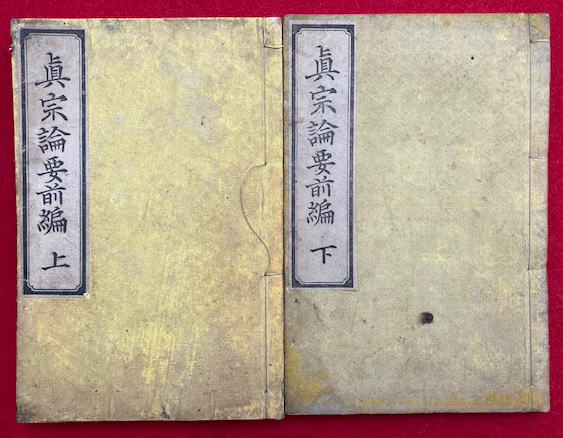 眞宗論要前編 上
眞宗論要前編 下